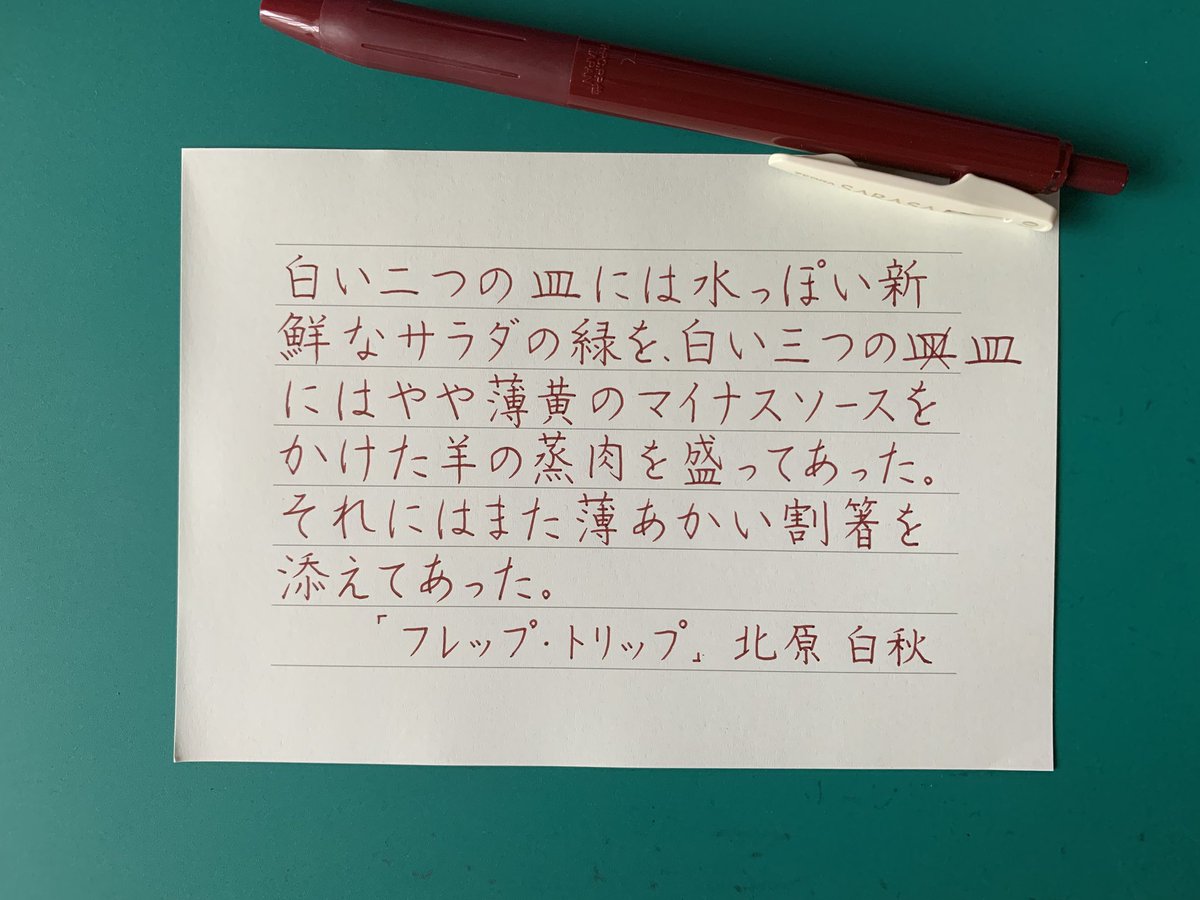 SARASA
白い二つの皿には水っぽい新
鮮なサラダの緑を、白い三つの皿
にはやや薄黄のマイナスソースを
かけた羊の蒸肉を盛ってあった。
それにはまた薄あかい割箸を
添えてあった。
「フレップ・トリップ」北原 白秋